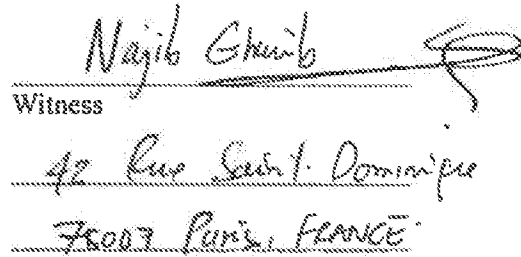 Najib Gharib
Witness
42 Rue Saint Dominique
75007 Paris, FRANCE